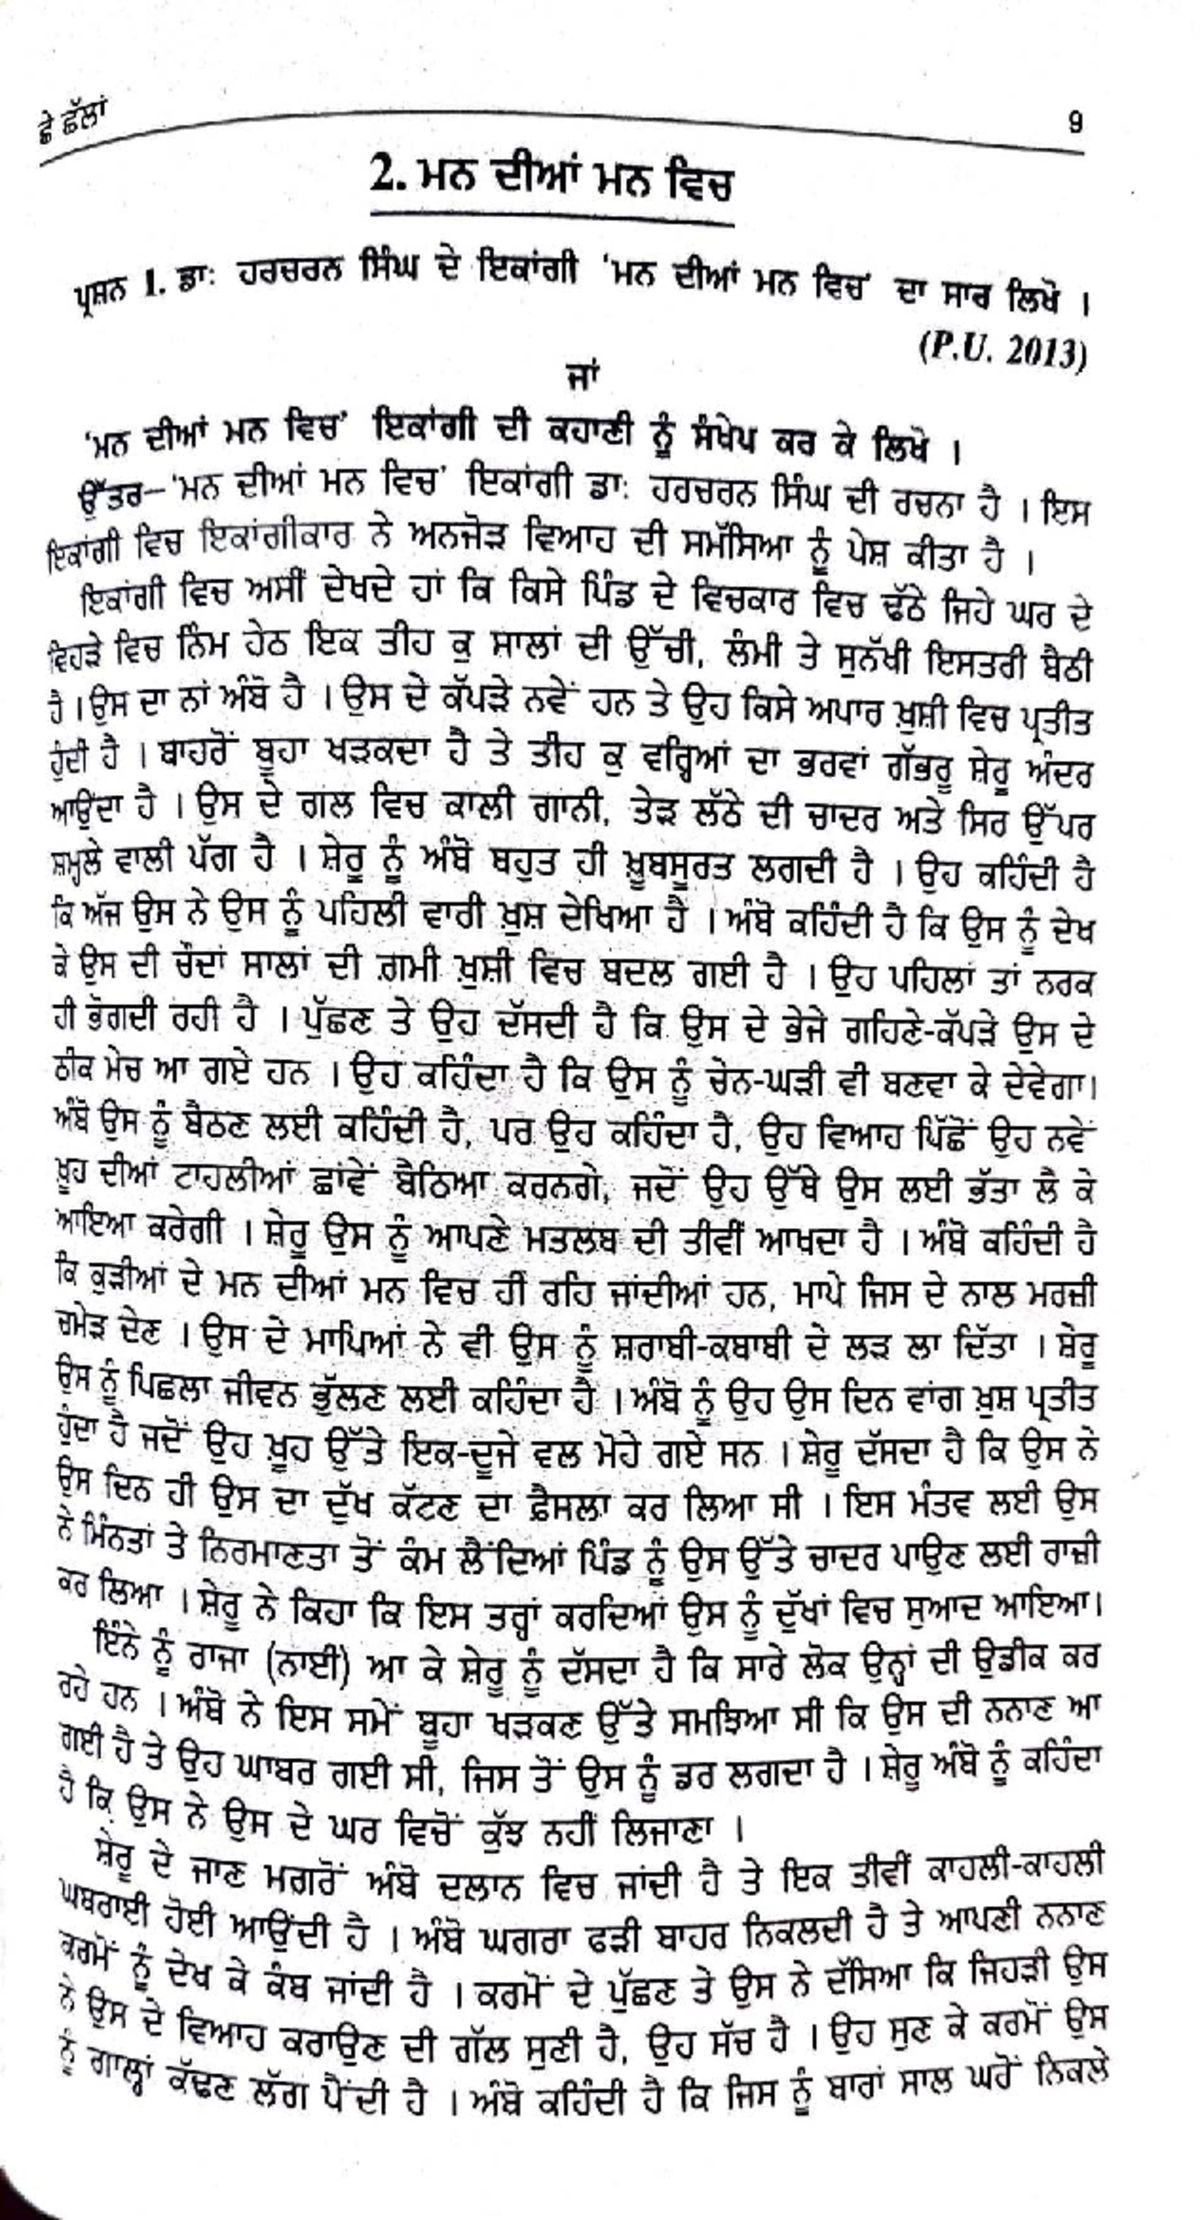 ਛੇ ਛੱਲਾਂ
9
2. ਮਨ ਦੀਆਂ ਮਨ ਵਿਚ
ਪ੍ਰਸ਼ਨ 1. ਡਾ: ਹਰਚਰਨ ਸਿੰਘ ਦੇ ਇਕਾਂਗੀ 'ਮਨ ਦੀਆਂ ਮਨ ਵਿਚ' ਦਾ ਸਾਰ ਲਿਖੋ ।
(P.U. 2013)
ਜਾਂ
'ਮਨ ਦੀਆਂ ਮਨ ਵਿਚ' ਇਕਾਂਗੀ ਦੀ ਕਹਾਣੀ ਨੂੰ ਸੰਖੇਪ ਕਰ ਕੇ ਲਿਖੋ ।
ਉੱਤਰ—'ਮਨ ਦੀਆਂ ਮਨ ਵਿਚ' ਇਕਾਂਗੀ ਡਾ: ਹਰਚਰਨ ਸਿੰਘ ਦੀ ਰਚਨਾ ਹੈ । ਇਸ
ਇਕਾਂਗੀ ਵਿਚ ਇਕਾਂਗੀਕਾਰ ਨੇ ਅਨਜੋੜ ਵਿਆਹ ਦੀ ਸਮੱਸਿਆ ਨੂੰ ਪੇਸ਼ ਕੀਤਾ ਹੈ ।
ਇਕਾਂਗੀ ਵਿਚ ਅਸੀਂ ਦੇਖਦੇ ਹਾਂ ਕਿ ਕਿਸੇ ਪਿੰਡ ਦੇ ਵਿਚਕਾਰ ਵਿਚ ਢੱਠੇ ਜਿਹੇ ਘਰ ਦੇ
ਵਿਹੜੇ ਵਿਚ ਨਿੰਮ ਹੇਠ ਇਕ ਤੀਹ ਕੁ ਸਾਲਾਂ ਦੀ ਉੱਚੀ, ਲੰਮੀ ਤੇ ਸੁਨੱਖੀ ਇਸਤਰੀ ਬੈਠੀ
ਹੈ । ਉਸ ਦਾ ਨਾਂ ਅੰਬੋ ਹੈ । ਉਸ ਦੇ ਕੱਪੜੇ ਨਵੇਂ ਹਨ ਤੇ ਉਹ ਕਿਸੇ ਅਪਾਰ ਖ਼ੁਸ਼ੀ ਵਿਚ ਪ੍ਰਤੀਤ
ਹੁੰਦੀ ਹੈ । ਬਾਹਰੋਂ ਬੂਹਾ ਖੜਕਦਾ ਹੈ ਤੇ ਤੀਹ ਕੁ ਵਰ੍ਹਿਆਂ ਦਾ ਭਰਵਾਂ ਗੱਭਰੂ ਸ਼ੇਰੂ ਅੰਦਰ
ਆਉਂਦਾ ਹੈ । ਉਸ ਦੇ ਗਲ ਵਿਚ ਕਾਲੀ ਗਾਨੀ, ਤੇੜ ਲੱਠੇ ਦੀ ਚਾਦਰ ਅਤੇ ਸਿਰ ਉੱਪਰ
ਸ਼ਮ੍ਹਲੇ ਵਾਲੀ ਪੱਗ ਹੈ । ਸ਼ੇਰੂ ਨੂੰ ਅੰਬੋ ਬਹੁਤ ਹੀ ਖ਼ੂਬਸੂਰਤ ਲਗਦੀ ਹੈ । ਉਹ ਕਹਿੰਦੀ ਹੈ
ਕਿ ਅੱਜ ਉਸ ਨੇ ਉਸ ਨੂੰ ਪਹਿਲੀ ਵਾਰੀ ਖ਼ੁਸ਼ ਦੇਖਿਆ ਹੈ । ਅੰਬੋ ਕਹਿੰਦੀ ਹੈ ਕਿ ਉਸ ਨੂੰ ਦੇਖ
ਕੇ ਉਸ ਦੀ ਚੌਦਾਂ ਸਾਲਾਂ ਦੀ ਗ਼ਮੀ ਖ਼ੁਸ਼ੀ ਵਿਚ ਬਦਲ ਗਈ ਹੈ । ਉਹ ਪਹਿਲਾਂ ਤਾਂ ਨਰਕ
ਹੀ ਭੋਗਦੀ ਰਹੀ ਹੈ । ਪੁੱਛਣ ਤੇ ਉਹ ਦੱਸਦੀ ਹੈ ਕਿ ਉਸ ਦੇ ਭੇਜੇ ਗਹਿਣੇ-ਕੱਪੜੇ ਉਸ ਦੇ
ਠੀਕ ਮੇਚ ਆ ਗਏ ਹਨ । ਉਹ ਕਹਿੰਦਾ ਹੈ ਕਿ ਉਸ ਨੂੰ ਚੇਨ-ਘੜੀ ਵੀ ਬਣਵਾ ਕੇ ਦੇਵੇਗਾ।
ਅੰਬੋ ਉਸ ਨੂੰ ਬੈਠਣ ਲਈ ਕਹਿੰਦੀ ਹੈ, ਪਰ ਉਹ ਕਹਿੰਦਾ ਹੈ, ਉਹ ਵਿਆਹ ਪਿੱਛੋਂ ਉਹ ਨਵੇਂ
ਖ਼ੂਹ ਦੀਆਂ ਟਾਹਲੀਆਂ ਛਾਂਵੇਂ ਬੈਠਿਆ ਕਰਨਗੇ, ਜਦੋਂ ਉਹ ਉੱਥੇ ਉਸ ਲਈ ਭੱਤਾ ਲੈ ਕੇ
ਆਇਆ ਕਰੇਗੀ । ਸ਼ੇਰੂ ਉਸ ਨੂੰ ਆਪਣੇ ਮਤਲਬ ਦੀ ਤੀਵੀਂ ਆਖਦਾ ਹੈ । ਅੰਬੋ ਕਹਿੰਦੀ ਹੈ
ਕਿ ਕੁੜੀਆਂ ਦੇ ਮਨ ਦੀਆਂ ਮਨ ਵਿਚ ਹੀ ਰਹਿ ਜਾਂਦੀਆਂ ਹਨ, ਮਾਪੇ ਜਿਸ ਦੇ ਨਾਲ ਮਰਜ਼ੀ
ਚਮੇੜ ਦੇਣ । ਉਸ ਦੇ ਮਾਪਿਆਂ ਨੇ ਵੀ ਉਸ ਨੂੰ ਸ਼ਰਾਬੀ-ਕਬਾਬੀ ਦੇ ਲੜ ਲਾ ਦਿੱਤਾ । ਸ਼ੇਰੂ
ਉਸ ਨੂੰ ਪਿਛਲਾ ਜੀਵਨ ਭੁੱਲਣ ਲਈ ਕਹਿੰਦਾ ਹੈ । ਅੰਬੋ ਨੂੰ ਉਹ ਉਸ ਦਿਨ ਵਾਂਗ ਖ਼ੁਸ਼ ਪ੍ਰਤੀਤ
ਹੁੰਦਾ ਹੈ ਜਦੋਂ ਉਹ ਖ਼ੂਹ ਉੱਤੇ ਇਕ-ਦੂਜੇ ਵਲ ਮੋਹੇ ਗਏ ਸਨ । ਸ਼ੇਰੂ ਦੱਸਦਾ ਹੈ ਕਿ ਉਸ ਨੇ
ਉਸ ਦਿਨ ਹੀ ਉਸ ਦਾ ਦੁੱਖ ਕੱਟਣ ਦਾ ਫ਼ੈਸਲਾ ਕਰ ਲਿਆ ਸੀ । ਇਸ ਮੰਤਵ ਲਈ ਉਸ
ਨੇ ਮਿੰਨਤਾਂ ਤੇ ਨਿਰਮਾਣਤਾ ਤੋਂ ਕੰਮ ਲੈਂਦਿਆਂ ਪਿੰਡ ਨੂੰ ਉਸ ਉੱਤੇ ਚਾਦਰ ਪਾਉਣ ਲਈ ਰਾਜ਼ੀ
ਕਰ ਲਿਆ । ਸ਼ੇਰੂ ਨੇ ਕਿਹਾ ਕਿ ਇਸ ਤਰ੍ਹਾਂ ਕਰਦਿਆਂ ਉਸ ਨੂੰ ਦੁੱਖਾਂ ਵਿਚ ਸੁਆਦ ਆਇਆ।
ਇੰਨੇ ਨੂੰ ਰਾਜਾ (ਨਾਈ) ਆ ਕੇ ਸ਼ੇਰੂ ਨੂੰ ਦੱਸਦਾ ਹੈ ਕਿ ਸਾਰੇ ਲੋਕ ਉਨ੍ਹਾਂ ਦੀ ਉਡੀਕ ਕਰ
ਰਹੇ ਹਨ । ਅੰਬੋ ਨੇ ਇਸ ਸਮੇਂ ਬੂਹਾ ਖੜਕਣ ਉੱਤੇ ਸਮਝਿਆ ਸੀ ਕਿ ਉਸ ਦੀ ਨਨਾਣ ਆ
ਗਈ ਹੈ ਤੇ ਉਹ ਘਾਬਰ ਗਈ ਸੀ, ਜਿਸ ਤੋਂ ਉਸ ਨੂੰ ਡਰ ਲਗਦਾ ਹੈ । ਸ਼ੇਰੂ ਅੰਬੋ ਨੂੰ ਕਹਿੰਦਾ
ਹੈ ਕਿ ਉਸ ਨੇ ਉਸ ਦੇ ਘਰ ਵਿਚੋਂ ਕੁੱਝ ਨਹੀਂ ਲਿਜਾਣਾ ।
ਸ਼ੇਰੂ ਦੇ ਜਾਣ ਮਗਰੋਂ ਅੰਬੋ ਦਲਾਨ ਵਿਚ ਜਾਂਦੀ ਹੈ ਤੇ ਇਕ ਤੀਵੀਂ ਕਾਹਲੀ-ਕਾਹਲੀ
ਘਬਰਾਈ ਹੋਈ ਆਉਂਦੀ ਹੈ । ਅੰਬੋ ਘਗਰਾ ਫੜੀ ਬਾਹਰ ਨਿਕਲਦੀ ਹੈ ਤੇ ਆਪਣੀ ਨਨਾਣ
ਕਰਮੋਂ ਨੂੰ ਦੇਖ ਕੇ ਕੰਬ ਜਾਂਦੀ ਹੈ । ਕਰਮੋਂ ਦੇ ਪੁੱਛਣ ਤੇ ਉਸ ਨੇ ਦੱਸਿਆ ਕਿ ਜਿਹੜੀ ਉਸ
ਨੇ ਉਸ ਦੇ ਵਿਆਹ ਕਰਾਉਣ ਦੀ ਗੱਲ ਸੁਣੀ ਹੈ, ਉਹ ਸੱਚ ਹੈ । ਉਹ ਸੁਣ ਕੇ ਕਰਮੋਂ ਉਸ
ਨੂੰ ਗਾਲ੍ਹਾਂ ਕੱਢਣ ਲੱਗ ਪੈਂਦੀ ਹੈ । ਅੰਬੋ ਕਹਿੰਦੀ ਹੈ ਕਿ ਜਿਸ ਨੂੰ ਬਾਰਾਂ ਸਾਲ ਘਰੋਂ ਨਿਕਲੇ